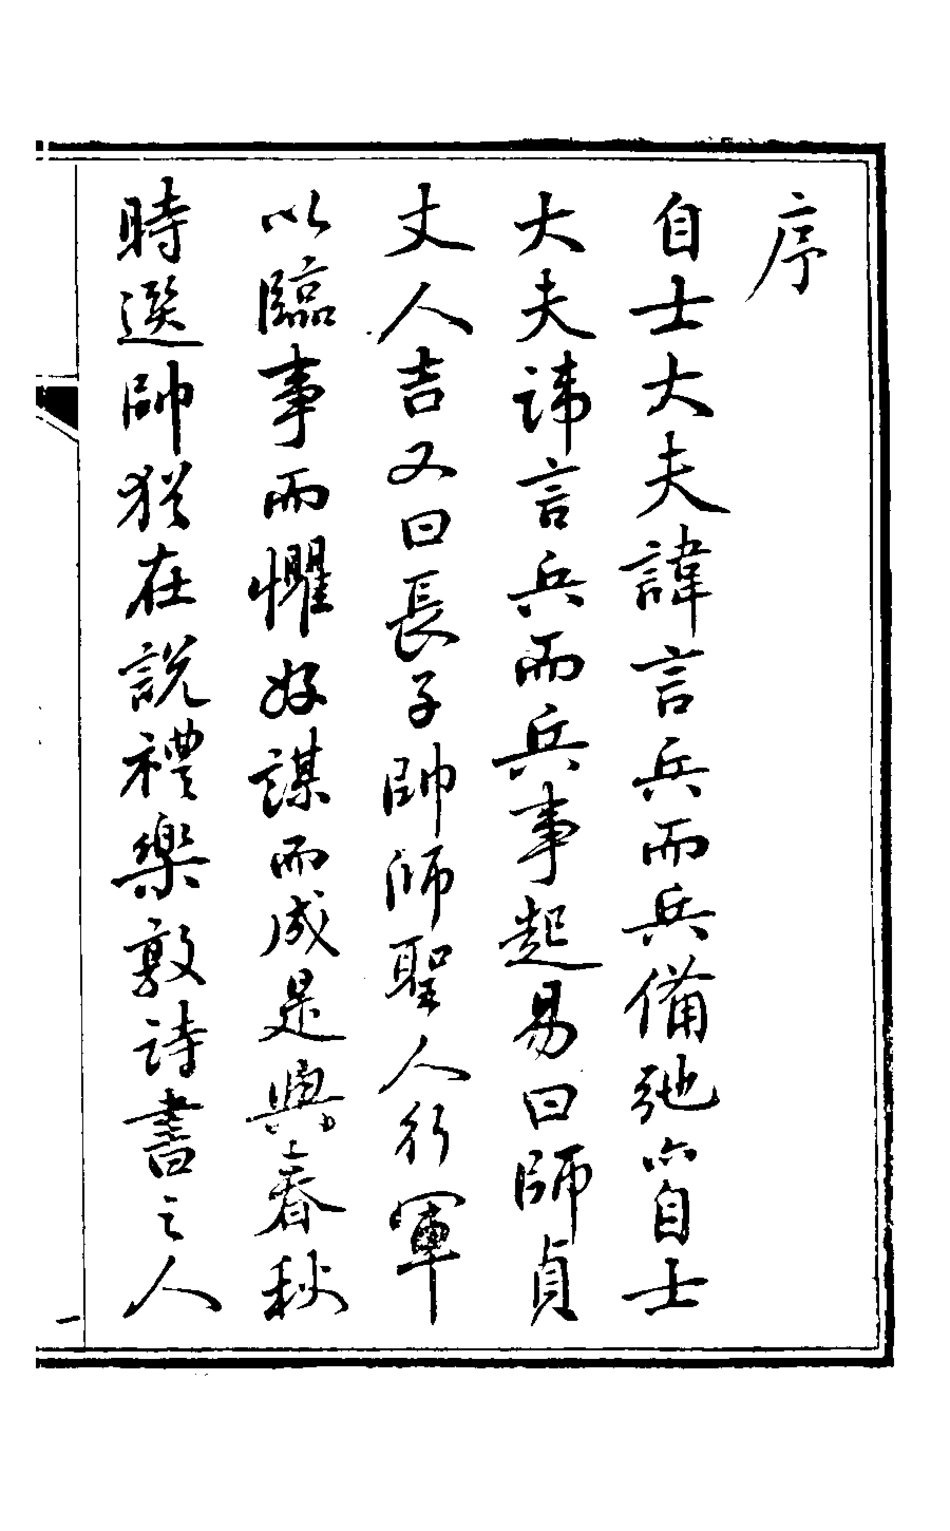 序
自士大夫諱言兵而兵備弛亦自士
大夫諱言兵而兵事起易曰師貞
丈人吉又曰長子帥師聖人行軍
以臨事而懼好謀而成是與春秋
時選帥猶在說禮樂敦詩書之人
一